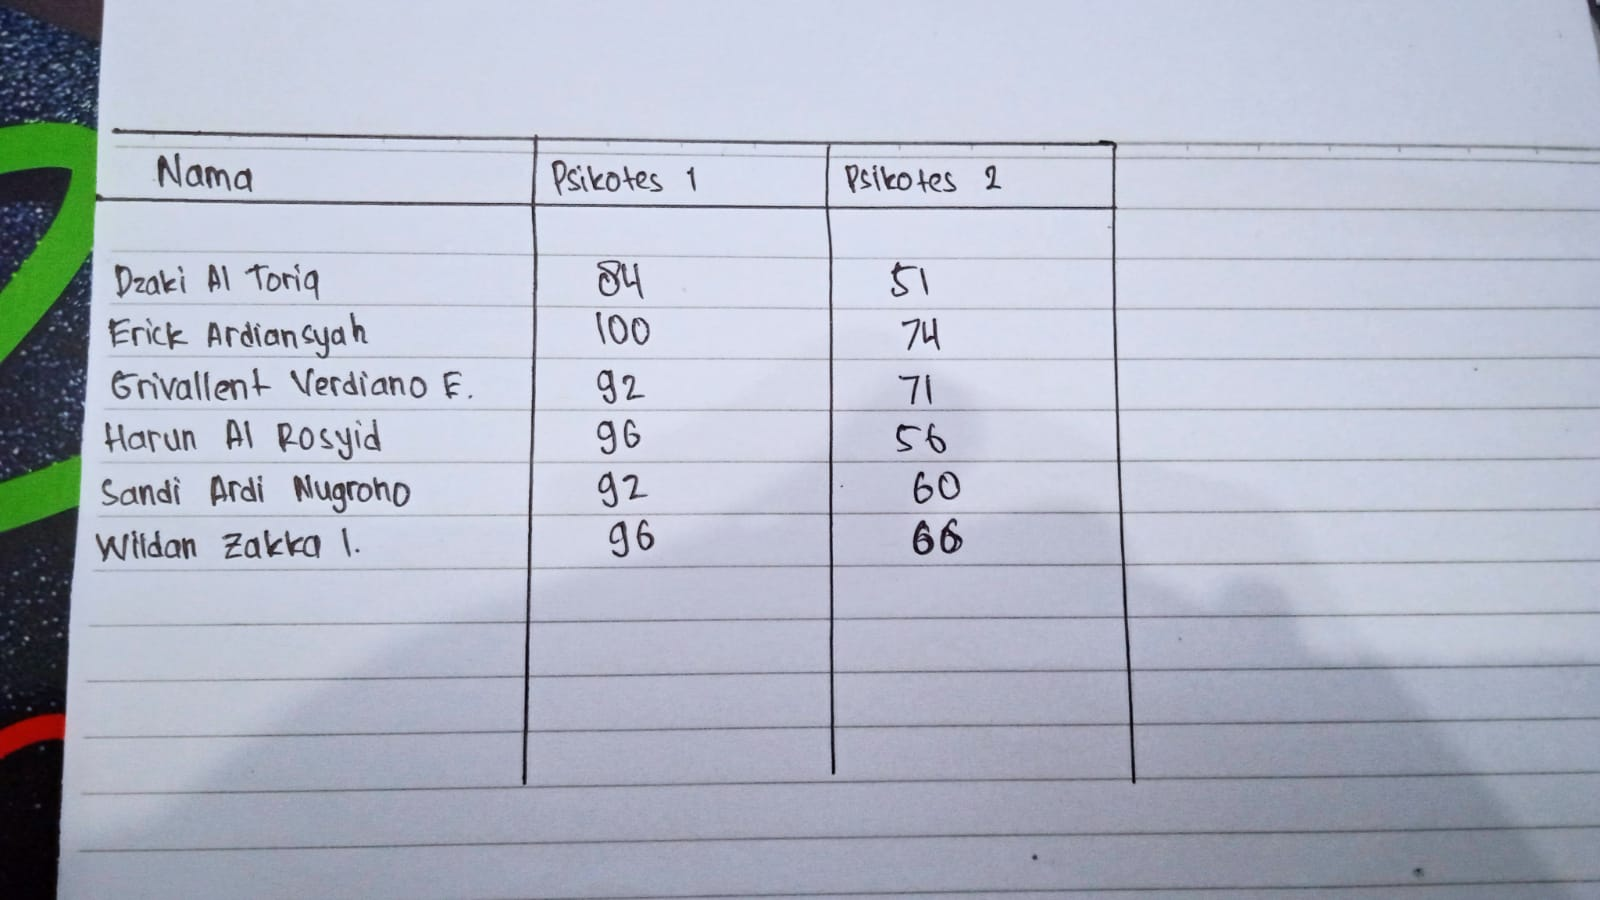 Nama Psikotes 1 Psikotes 2
Dzaki Al Toriq 84 51
Erick Ardiansyah 100 74
Grivallent Verdiano E. 92 71
Harun Al Rosyid 96 56
Sandi Ardi Nugroho 92 60
Wildan Zakka I. 96 66